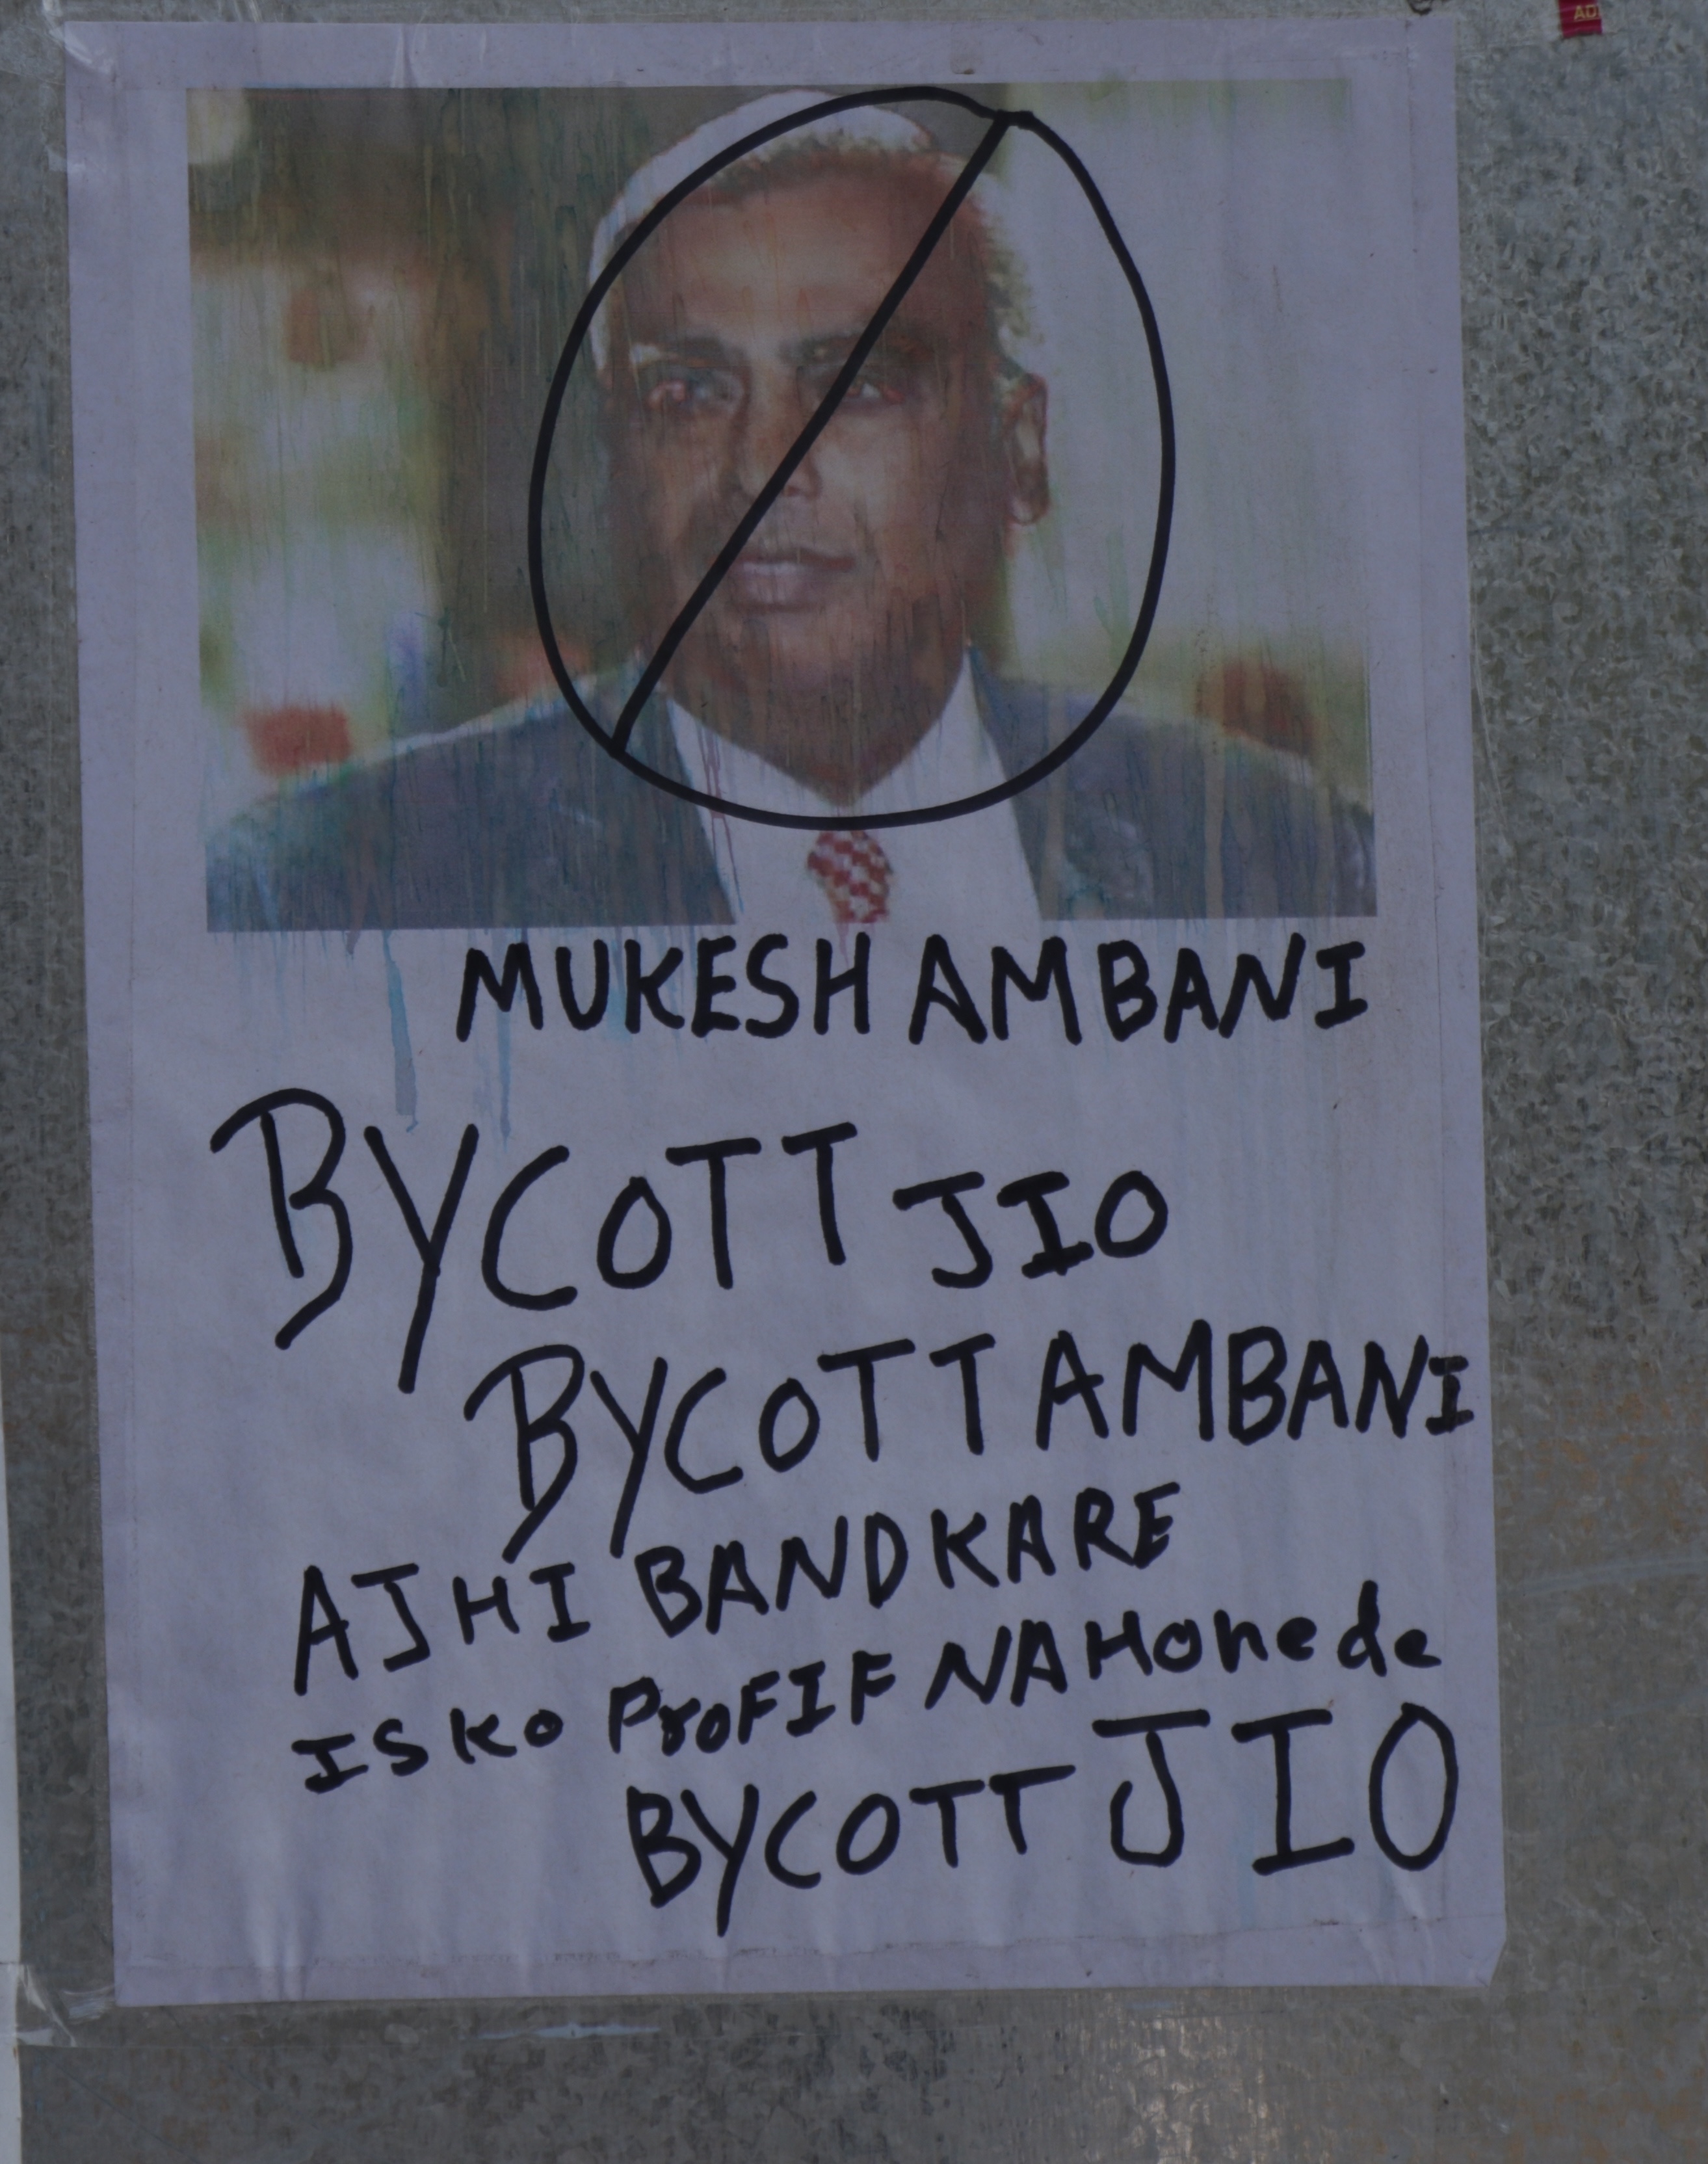 MUKESH AMBANI
BYCOTT JIO
BYCOTT AMBANI
AJHI BANDKARE
ISKO ProFIF NAHONEde
BYCOTT JIO